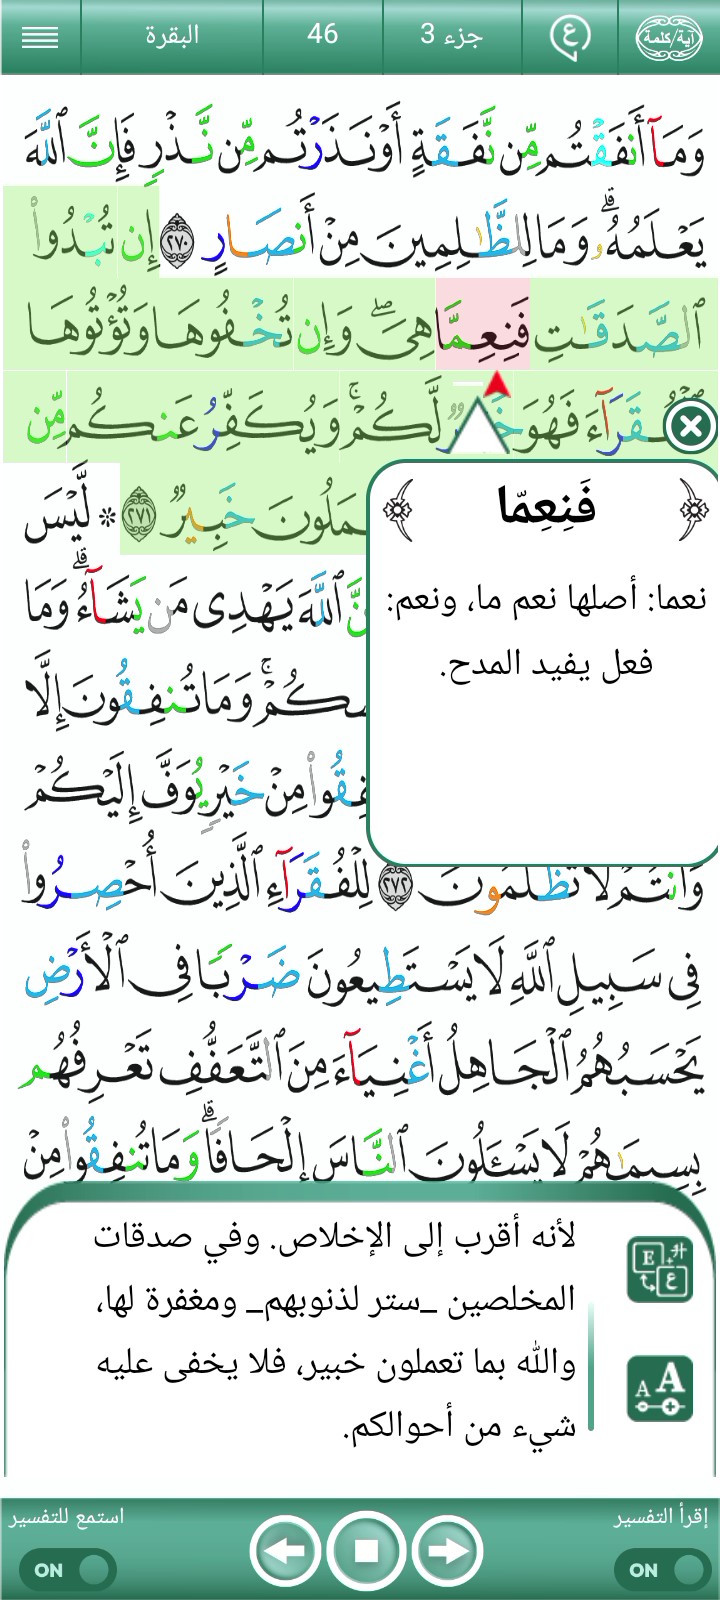 آية/كلمة
ع
جزء 3
46
البقرة
وَمَآ أَنفَقْتُم مِّن نَّفَقَةٍ أَوْ نَذَرْتُم مِّن نَّذْرٍ فَإِنَّ ٱللَّهَ
يَعْلَمُهُۥ ۗ وَمَا لِلظَّٰلِمِينَ مِنْ أَنصَارٍ ٢٧٠ إِن تُبْدُوا۟
ٱلصَّدَقَٰتِ فَنِعِمَّا هِىَ ۖ وَإِن تُخْفُوهَا وَتُؤْتُوهَا
فَهُوَ خَيْرٌ لَّكُمْ ۚ وَيُكَفِّرُ عَنكُم مِّن
خَبِيرٌ ٢٧١ ۞ لَّيْسَ
فَنِعِمّا
نعما: أصلها نعم ما، ونعم:
فعل يفيد المدح.
ٱللَّهَ يَهْدِى مَن يَشَآءُ ۗ وَمَا
وَمَا تُنفِقُونَ إِلَّا
مِنْ خَيْرٍ يُوَفَّ إِلَيْكُمْ
وَأَنتُمْ لَا تُظْلَمُونَ ٢٧٢ لِلْفُقَرَآءِ ٱلَّذِينَ أُحْصِرُوا۟
فِى سَبِيلِ ٱللَّهِ لَا يَسْتَطِيعُونَ ضَرْبًا فِى ٱلْأَرْضِ
يَحْسَبُهُمُ ٱلْجَاهِلُ أَغْنِيَآءَ مِنَ ٱلتَّعَفُّفِ تَعْرِفُهُم
بِسِيمَٰهُمْ لَا يَسْـَٔلُونَ ٱلنَّاسَ إِلْحَافًا ۗ وَمَا تُنفِقُوا۟ مِنْ
لأنه أقرب إلى الإخلاص. وفي صدقات
المخلصين _ستر لذنوبهم_ ومغفرة لها،
والله بما تعملون خبير، فلا يخفى عليه
شيء من أحوالكم.
E
ع
A A
إقرأ التفسير
استمع للتفسير
ON
ON